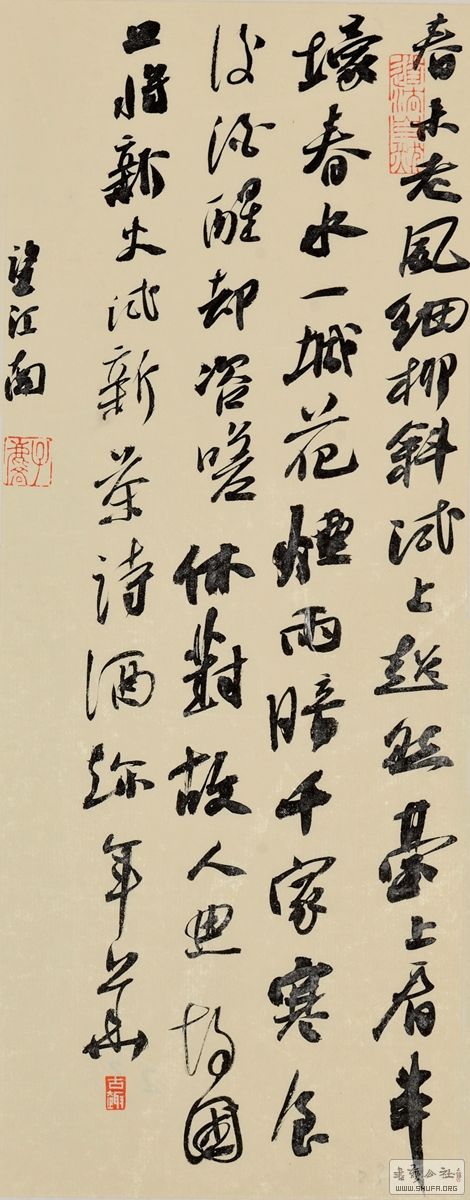 春未老風細柳斜試上超然臺上看半
壕春水一城花煙雨暗千家寒食
後酒醒却咨嗟休對故人思故國
且將新火試新茶詩酒趁年華
望江南
古趣
書藝公社
WWW.SHUFA.ORG